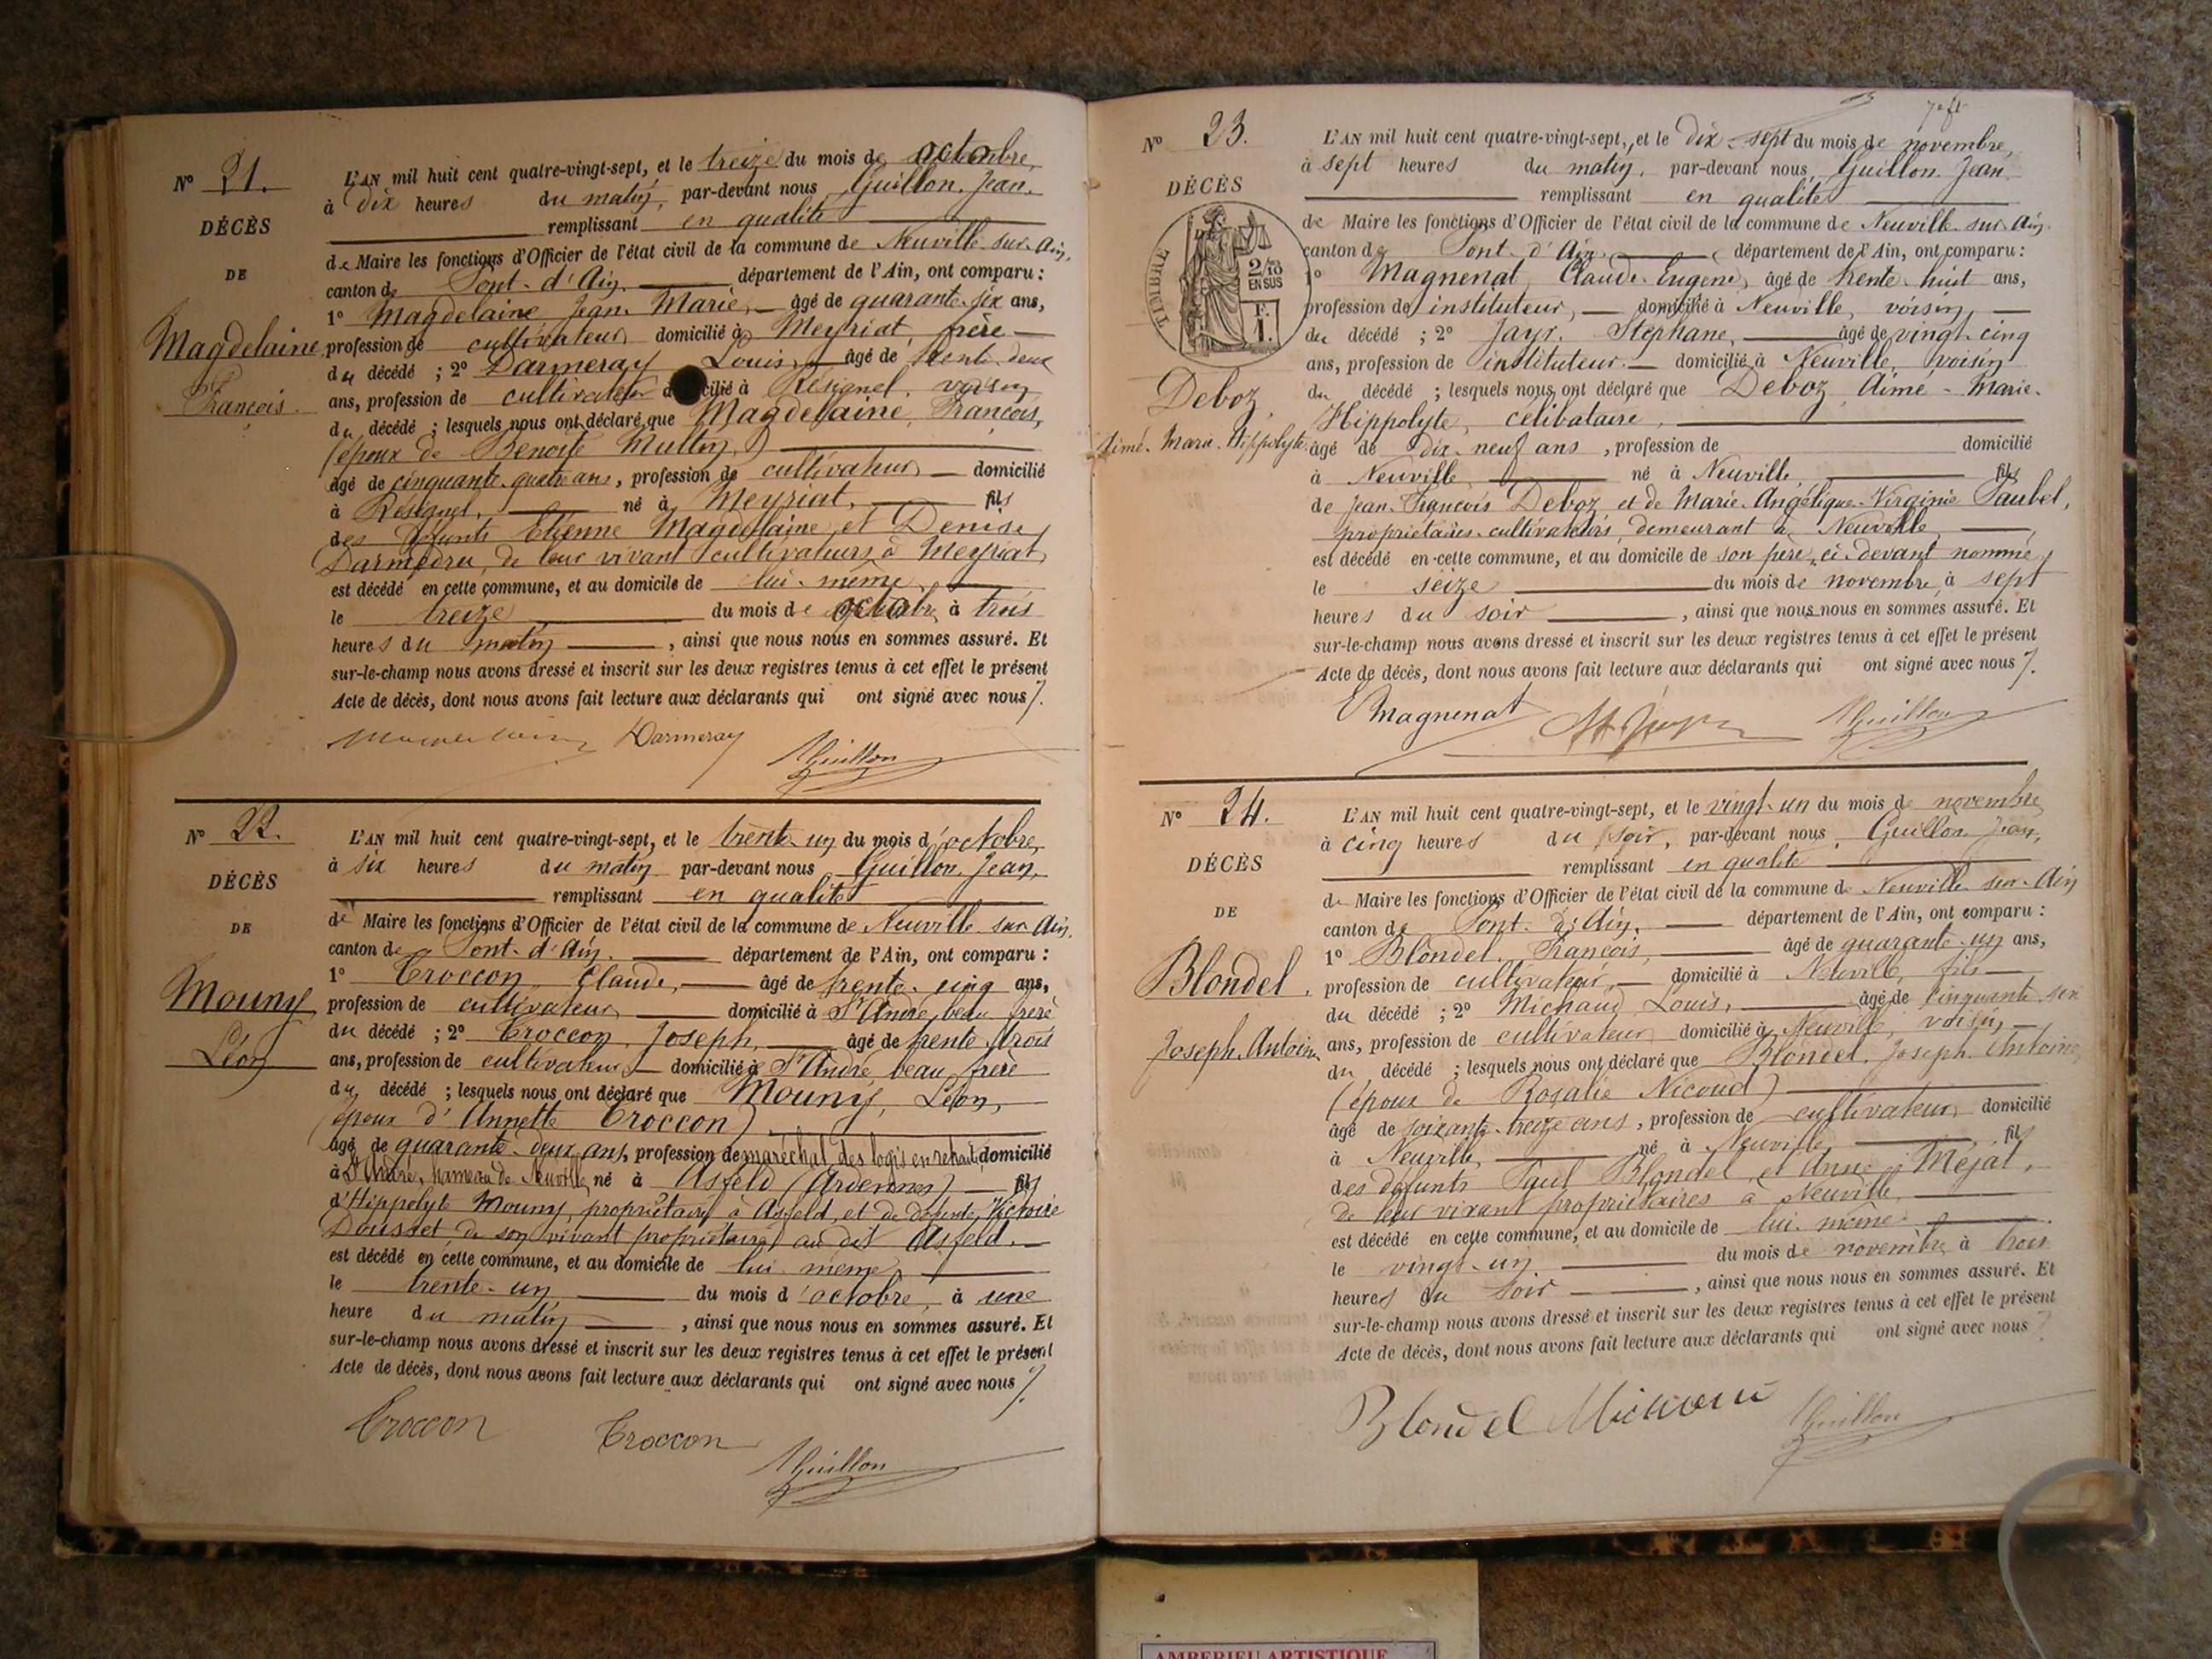 N° 21.
DÉCÈS
DE
Magdelaine
François.
L'AN mil huit cent quatre-vingt-sept, et le treize du mois de octobre,
à dix heures du matin, par-devant nous Guillon Jean,
remplissant en qualité
de Maire les fonctions d'Officier de l'état civil de la commune de Neuville-sur-Ain,
canton de Pont-d'Ain, département de l'Ain, ont comparu :
1° Magdelaine Jean Marie, âgé de quarante-six ans,
profession de cultivateur domicilié à Meyriat, frère
du décédé ; 2° Darmeray Louis, âgé de trente-deux
ans, profession de cultivateur domicilié à Résignel, voisin
du décédé ; lesquels nous ont déclaré que Magdelaine, François,
(époux de Benoîte Mullin,)
âgé de cinquante-quatre ans, profession de cultivateur domicilié
à Résignel, né à Meyriat, fils
des défunts Etienne Magdelaine et Denise
de leur vivant cultivateurs à Meyriat,
est décédé en cette commune, et au domicile de lui-même,
le treize du mois de octobre, à trois
heures du matin, ainsi que nous nous en sommes assuré. Et
sur-le-champ nous avons dressé et inscrit sur les deux registres tenus à cet effet le présent
Acte de décès, dont nous avons fait lecture aux déclarants qui ont signé avec nous.
Darmeray
Guillon
N° 22.
DÉCÈS
DE
Mouny
Léon
L'AN mil huit cent quatre-vingt-sept, et le trente-un du mois d'octobre,
à six heures du matin par-devant nous Guillon Jean,
remplissant en qualité
de Maire les fonctions d'Officier de l'état civil de la commune de Neuville-sur-Ain,
canton de Pont-d'Ain, département de l'Ain, ont comparu :
1° Croccon Claude, âgé de trente-cinq ans,
profession de cultivateur, domicilié à St André, beau-frère
du décédé ; 2° Croccon, Joseph, âgé de trente-trois
ans, profession de cultivateur, domicilié à St André beau-frère
du décédé ; lesquels nous ont déclaré que Mouny, Léon,
(époux d'Annette Croccon)
âgé de quarante-deux ans, profession de maréchal des logis en retraite, domicilié
à St André, hameau de Neuville, né à Asfeld (Ardennes) fils
d'Hippolyte Mouny, propriétaire à Asfeld, et de défunte Victoire
Dousset, de son vivant propriétaire au dit Asfeld.
est décédé en cette commune, et au domicile de lui-même,
le trente-un du mois d'octobre, à une
heure du matin, ainsi que nous nous en sommes assuré. Et
sur-le-champ nous avons dressé et inscrit sur les deux registres tenus à cet effet le présent
Acte de décès, dont nous avons fait lecture aux déclarants qui ont signé avec nous.
Croccon Croccon
Guillon
N° 23.
DÉCÈS
TIMBRE
2/10
EN SUS
F.
1.
Deboz,
Aimé-Marie-Hippolyte
L'AN mil huit cent quatre-vingt-sept, et le dix-sept du mois de novembre,
à sept heures du matin, par-devant nous, Guillon Jean,
remplissant en qualité
de Maire les fonctions d'Officier de l'état civil de la commune de Neuville-sur-Ain,
canton de Pont-d'Ain, département de l'Ain, ont comparu :
1° Magnenat, Claude-Eugène, âgé de trente-huit ans,
profession de instituteur, domicilié à Neuville, voisin,
du décédé ; 2° Jayr, Stéphane, âgé de vingt-cinq
ans, profession de instituteur domicilié à Neuville, voisin
du décédé ; lesquels nous ont déclaré que Deboz, Aimé-Marie-
Hippolyte, célibataire,
âgé de dix-neuf ans, profession de domicilié
à Neuville, né à Neuville, fils
de Jean-François Deboz et de Marie-Angélique-Virginie Paubel,
propriétaires-cultivateurs, demeurant à Neuville,
est décédé en cette commune, et au domicile de son père, ci-devant nommé,
le seize du mois de novembre, à sept
heures du soir, ainsi que nous nous en sommes assuré. Et
sur-le-champ nous avons dressé et inscrit sur les deux registres tenus à cet effet le présent
Acte de décès, dont nous avons fait lecture aux déclarants qui ont signé avec nous.
Magnenat
Guillon
N° 24.
DÉCÈS
DE
Blondel,
Joseph-Antoine
L'AN mil huit cent quatre-vingt-sept, et le vingt-un du mois de novembre
à cinq heures du soir, par-devant nous, Guillon Jean,
remplissant en qualité
de Maire les fonctions d'Officier de l'état civil de la commune de Neuville-sur-Ain
canton de Pont-d'Ain, département de l'Ain, ont comparu :
1° Blondel, François, âgé de quarante-un ans,
profession de cultivateur, domicilié à Neuville, fils
du décédé ; 2° Michaud Louis, âgé de cinquante-six
ans, profession de cultivateur domicilié à Neuville, voisin
du décédé ; lesquels nous ont déclaré que Blondel, Joseph-Antoine
(époux de Rosalie Nicoud)
âgé de soixante-treize ans, profession de cultivateur domicilié
à Neuville, né à Neuville fils
des défunts Paul Blondel et Anne Méjat,
de leur vivant propriétaires à Neuville,
est décédé en cette commune, et au domicile de lui-même.
le vingt-un du mois de novembre à trois
heures du soir, ainsi que nous nous en sommes assuré. Et
sur-le-champ nous avons dressé et inscrit sur les deux registres tenus à cet effet le présent
Acte de décès, dont nous avons fait lecture aux déclarants qui ont signé avec nous
Blondel
Guillon
AMBERIEU ARTISTIQUE